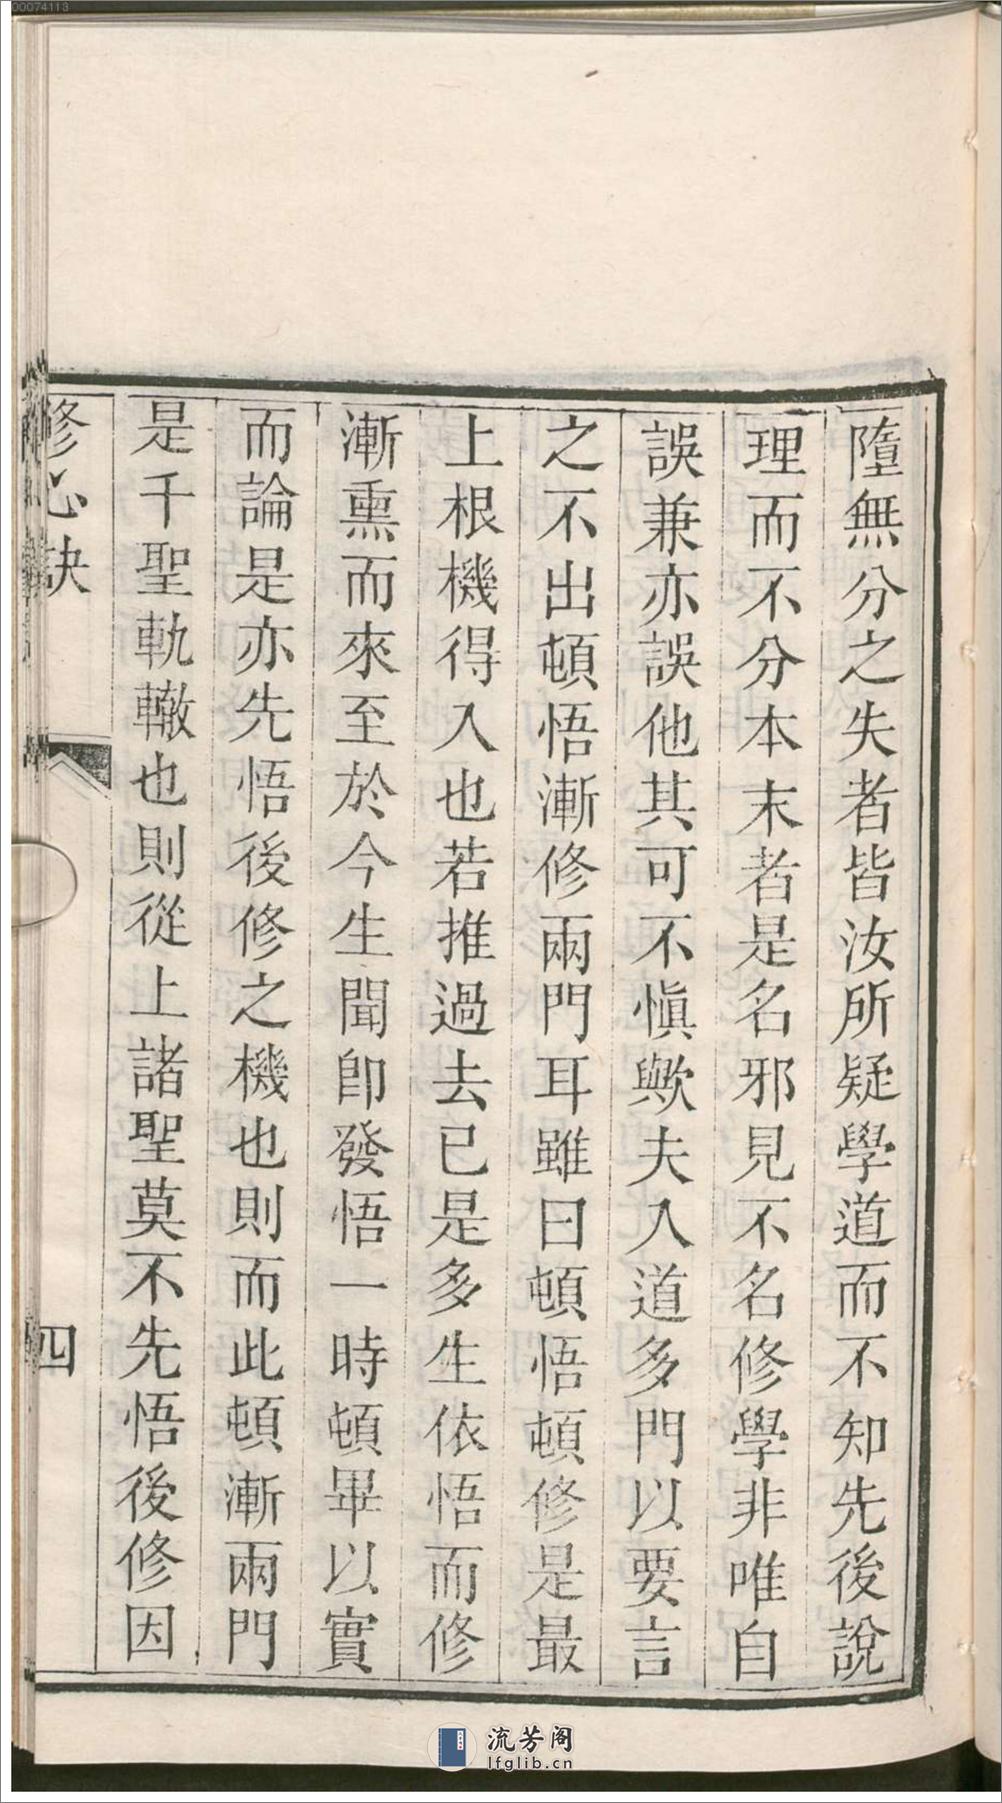 00074113
墮無分之失者皆汝所疑學道而不知先後說
理而不分本末者是名邪見不名修學非唯自
誤兼亦誤他其可不愼歟夫入道多門以要言
之不出頓悟漸修兩門耳雖曰頓悟頓修是最
上根機得入也若推過去已是多生依悟而修
漸熏而來至於今生聞卽發悟一時頓畢以實
而論是亦先悟後修之機也則而此頓漸兩門
是千聖軌轍也則從上諸聖莫不先悟後修因
修心訣
四
流芳阁
lfglib.cn